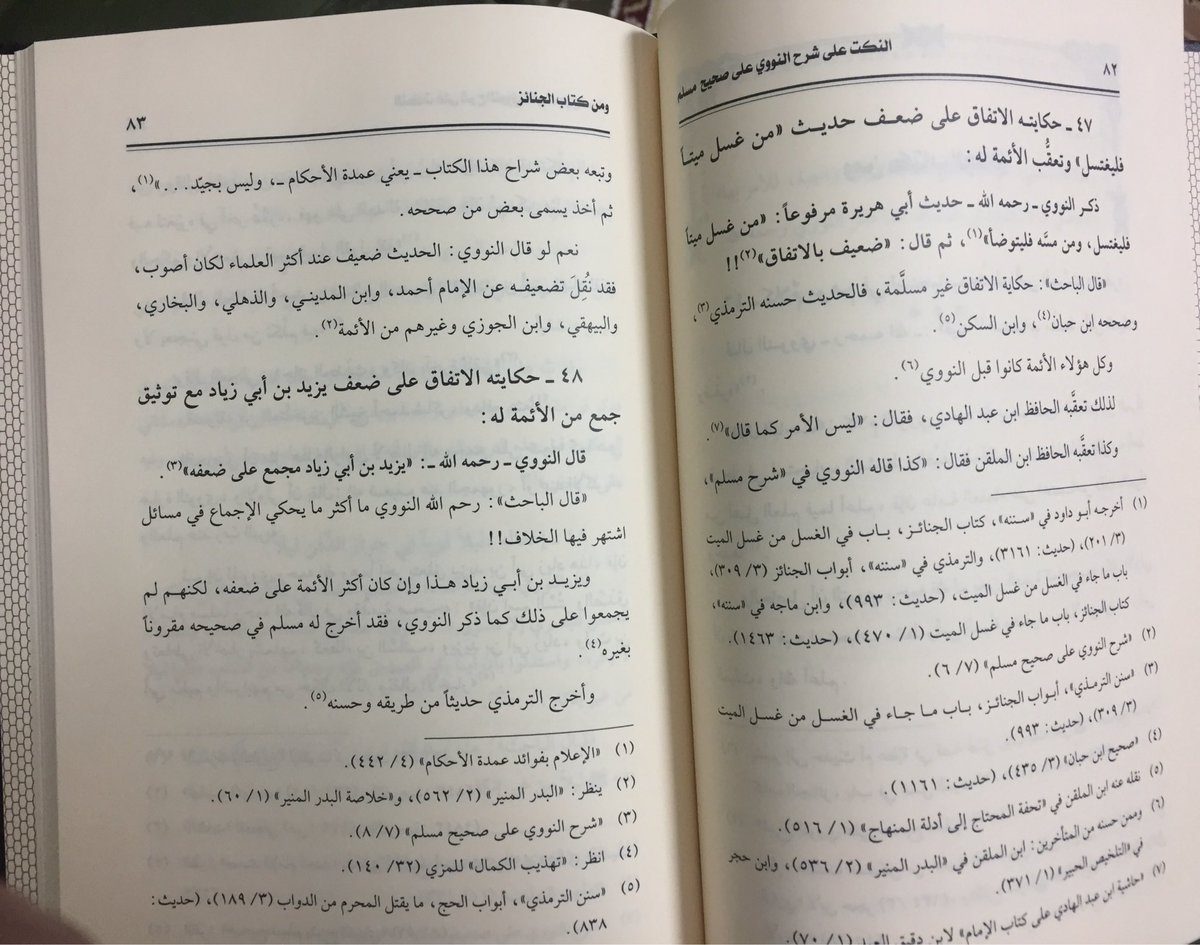 ٨٢
النكت على شرح النووي على صحيح مسلم
٤٧ ـ حكايته الاتفاق على ضعف حديث «من غسل ميتاً
فليغتسل» وتعقُّب الأئمة له:
ذكر النووي ـ رحمه الله ـ حديث أبي هريرة مرفوعاً: «من غسل ميتاً
فليغتسل، ومن مسَّه فليتوضأ»(١)، ثم قال: «ضعيف بالاتفاق»(٢)!!
«قال الباحث»: حكاية الاتفاق غير مسلَّمة، فالحديث حسنه الترمذي(٣)،
وصححه ابن حبان(٤)، وابن السكن(٥).
وكل هؤلاء الأئمة كانوا قبل النووي(٦).
لذلك تعقَّبه الحافظ ابن عبد الهادي، فقال: «ليس الأمر كما قال»(٧).
وكذا تعقَّبه الحافظ ابن الملقن فقال: «كذا قاله النووي في «شرح مسلم»،
(١) أخرجه أبو داود في «سننه»، كتاب الجنائز، باب في الغسل من غسل الميت
(٣/ ٢٠١)، (حديث: ٣١٦١)، والترمذي في «سننه»، أبواب الجنائز (٣/ ٣٠٩)،
باب ما جاء في الغسل من غسل الميت، (حديث: ٩٩٣)، وابن ماجه في «سننه»،
كتاب الجنائز، باب ما جاء في غسل الميت (١/ ٤٧٠)، (حديث: ١٤٦٣).
(٢) «شرح النووي على صحيح مسلم» (٧/ ٦).
(٣) «سنن الترمذي»، أبواب الجنائز، باب ما جاء في الغسل من غسل الميت
(٣/ ٣٠٩)، (حديث: ٩٩٣).
(٤) «صحيح ابن حبان» (٣/ ٤٣٥)، (حديث: ١١٦١).
(٥) نقله عنه ابن الملقن في «تحفة المحتاج إلى أدلة المنهاج» (١/ ٥١٦).
(٦) وممن حسنه من المتأخرين: ابن الملقن في «البدر المنير» (٢/ ٥٣٦)، وابن حجر
في «التلخيص الحبير» (١/ ٣٧١).
(٧) «حاشية ابن عبد الهادي على كتاب الإمام» لابن دقيق العيد (١/ ٧٠).
ومن كتاب الجنائز
٨٣
وتبعه بعض شراح هذا الكتاب ـ يعني عمدة الأحكام ـ، وليس بجيّد...»(١)،
ثم أخذ يسمى بعض من صححه.
نعم لو قال النووي: الحديث ضعيف عند أكثر العلماء لكان أصوب،
فقد نُقِلَ تضعيفه عن الإمام أحمد، وابن المديني، والذهلي، والبخاري،
والبيهقي، وابن الجوزي وغيرهم من الأئمة(٢).
٤٨ ـ حكايته الاتفاق على ضعف يزيد بن أبي زياد مع توثيق
جمع من الأئمة له:
قال النووي ـ رحمه الله ـ: «يزيد بن أبي زياد مجمع على ضعفه»(٣).
«قال الباحث»: رحم الله النووي ما أكثر ما يحكي الإجماع في مسائل
اشتهر فيها الخلاف!!
ويزيد بن أبي زياد هذا وإن كان أكثر الأئمة على ضعفه، لكنهم لم
يجمعوا على ذلك كما ذكر النووي، فقد أخرج له مسلم في صحيحه مقروناً
بغيره(٤).
وأخرج الترمذي حديثاً من طريقه وحسنه(٥).
(١) «الإعلام بفوائد عمدة الأحكام» (٤/ ٤٤٢).
(٢) ينظر: «البدر المنير» (٢/ ٥٦٢)، و«خلاصة البدر المنير» (١/ ٦٠).
(٣) «شرح النووي على صحيح مسلم» (٧/ ٨).
(٤) انظر: «تهذيب الكمال» للمزي (٣٢/ ١٤٠).
(٥) «سنن الترمذي»، أبواب الحج، ما يقتل المحرم من الدواب (٣/ ١٨٩)، (حديث:
٨٣٨).